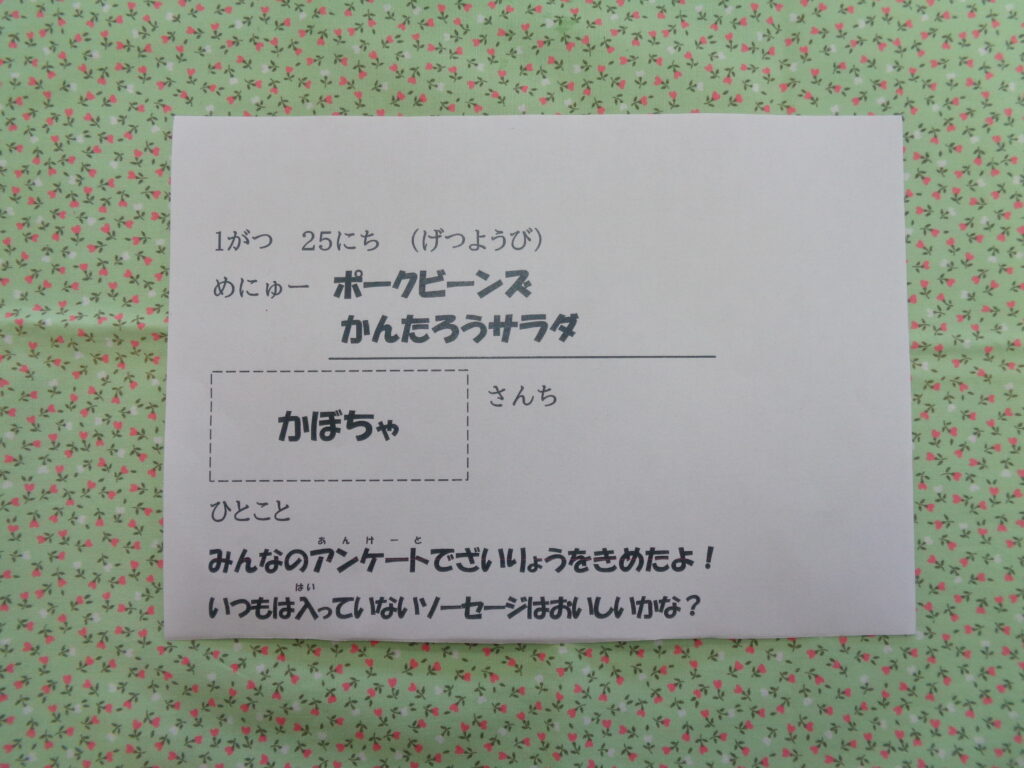 1がつ　25にち　（げつようび）
めにゅー　ポークビーンズ
かんたろうサラダ
かぼちゃ　さんち
ひとこと
あんけーと
みんなのアンケートでざいりょうをきめたよ！
はい
いつもは入っていないソーセージはおいしいかな？